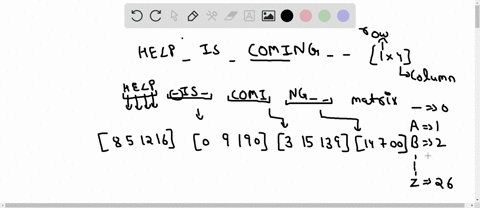 row
HELP_IS_COMING__ [1x4]
column
HELP _IS_ COMI NG__ matrix
_ => 0
A => 1
[8 5 12 16] [0 9 19 0] [3 15 13 9] [14 7 0 0] B => 2
Z => 26